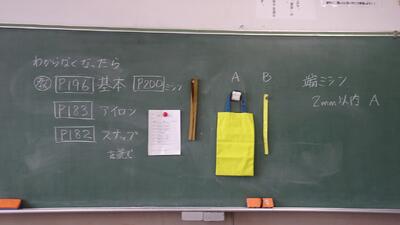 わからなくなったら
P196 基本 P200 ミシン
P183 アイロン
P182 スナップ
A B
端ミシン
2mm以内 A